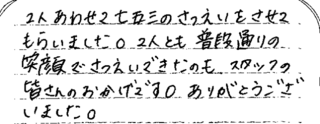 2人あわせて七五三のさつえいをさせて
もらいました。2人とも普段通りの
笑顔でさつえいできたのも、スタッフの
皆さんのおかげです。ありがとうござ
いました。